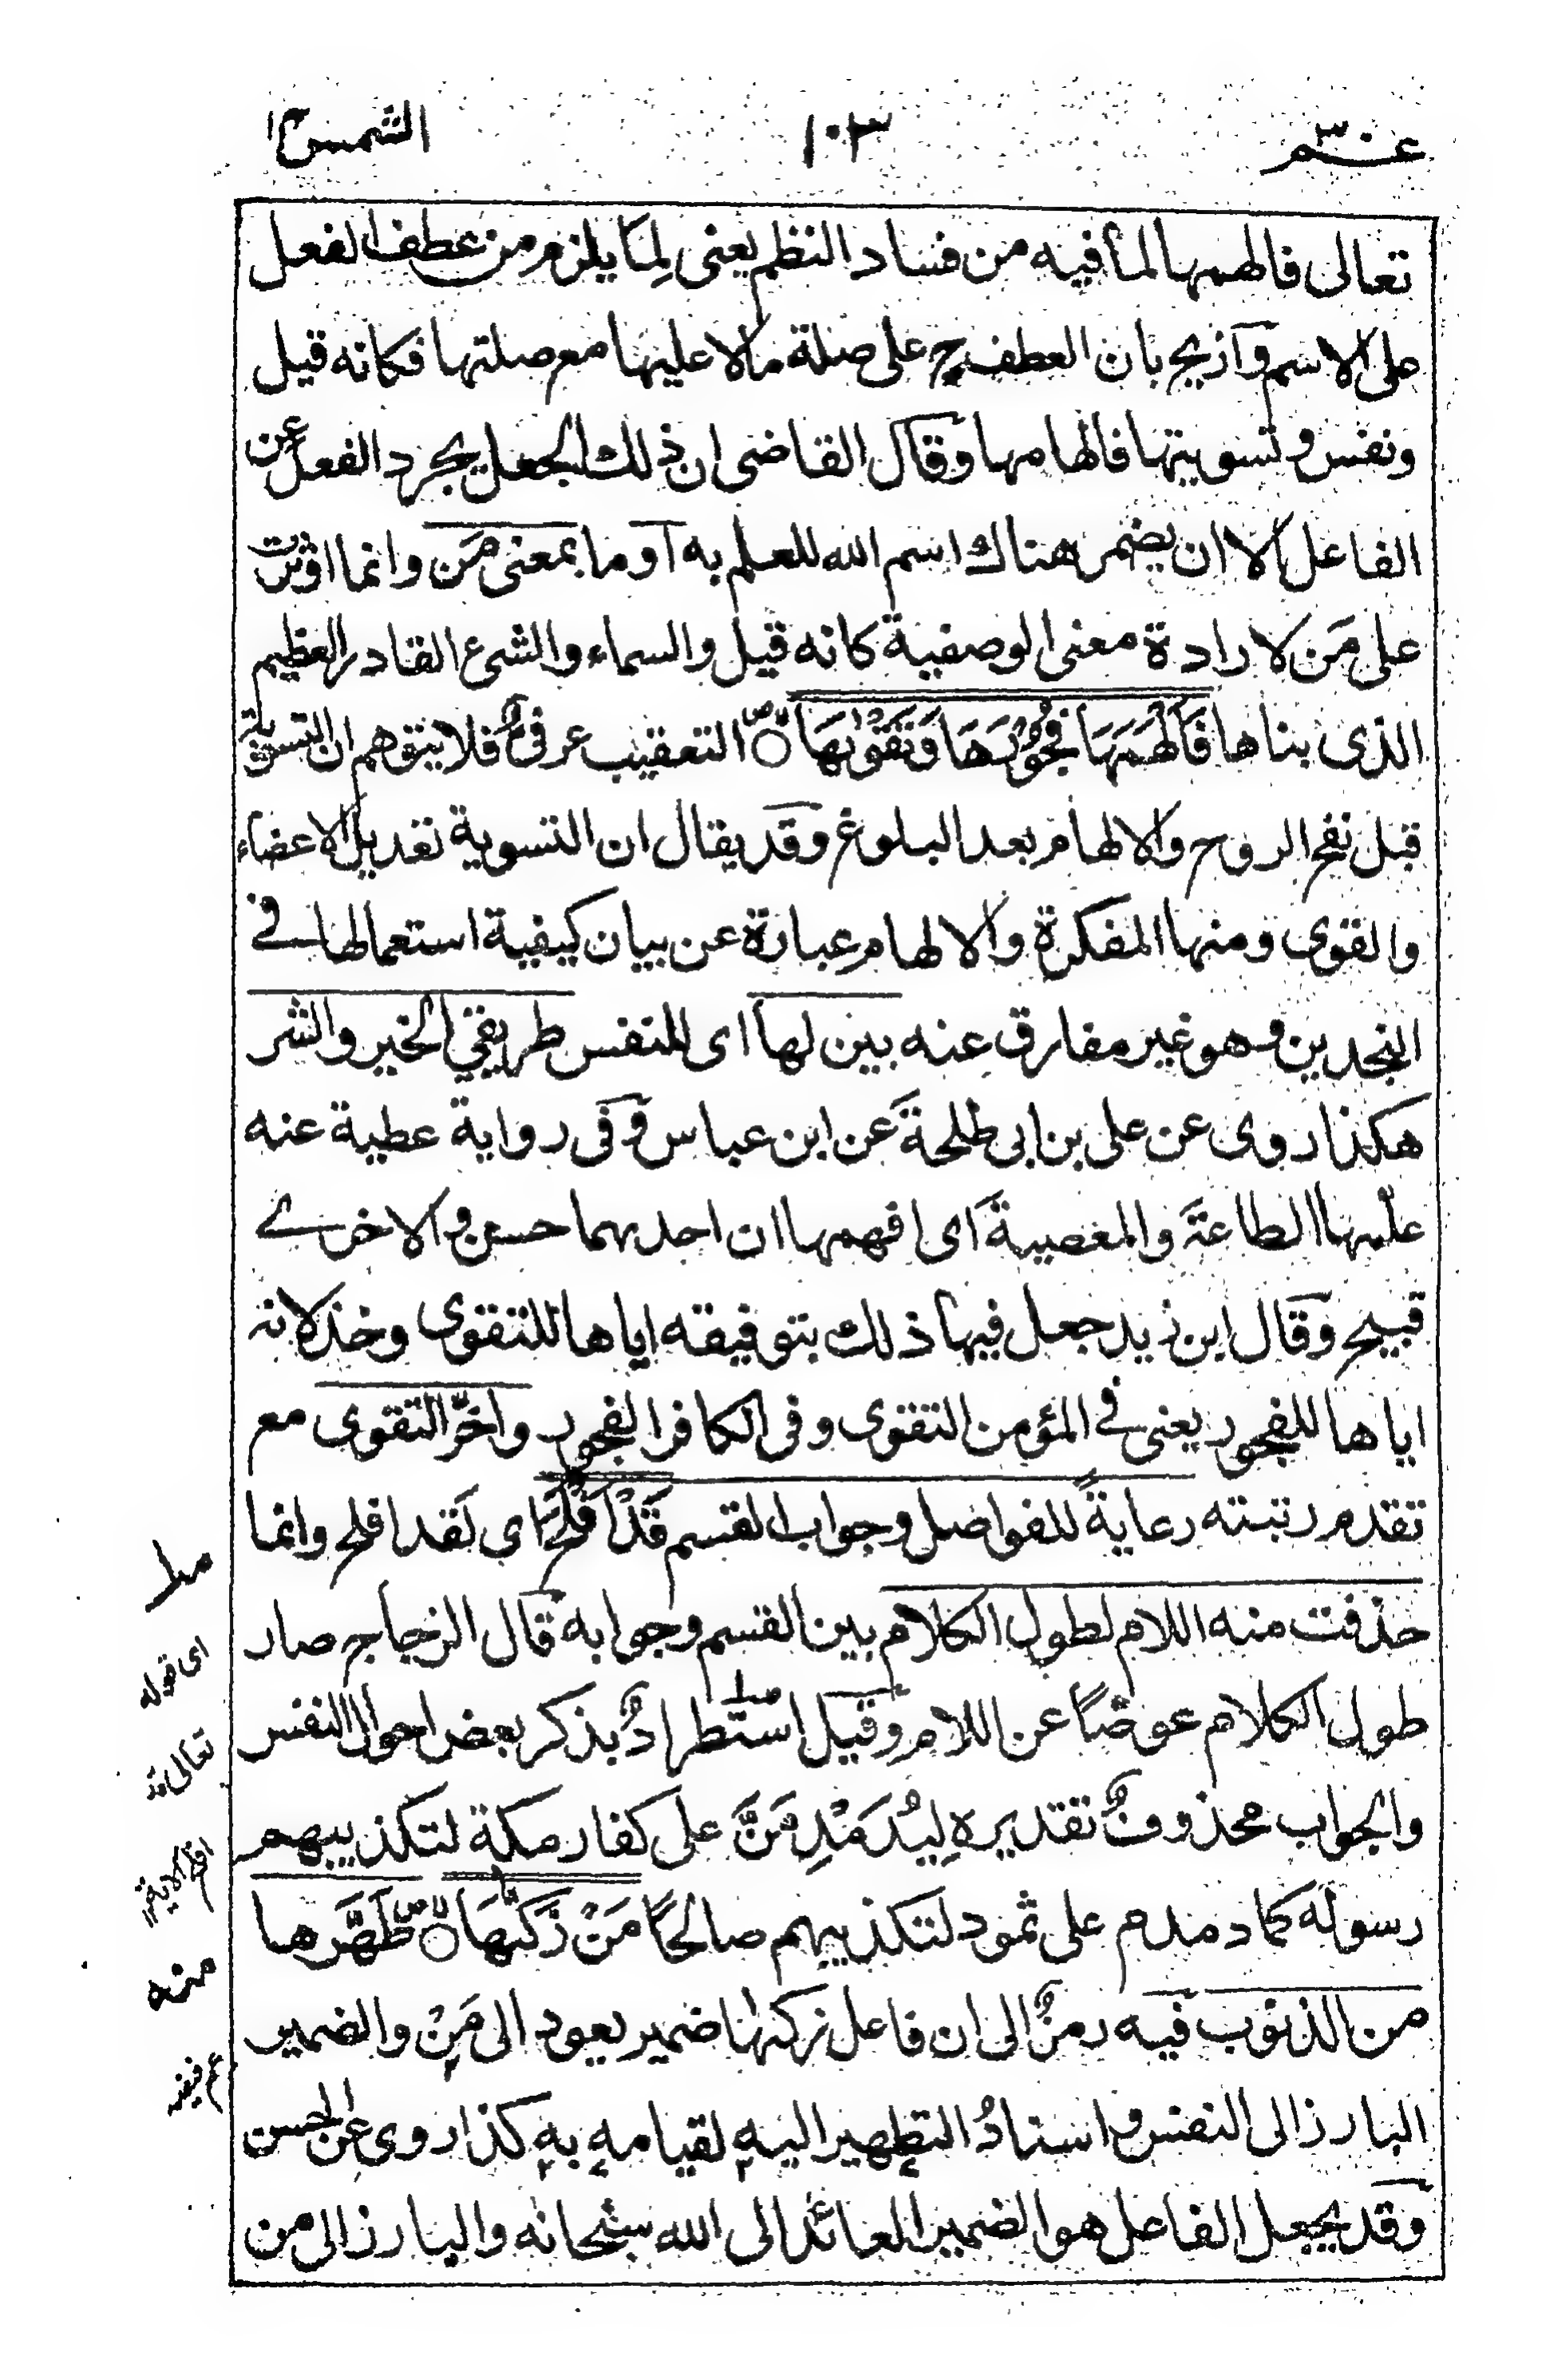 عـــم٣٠ ١٠٣ الشمس ٩١
تعالى فالهمها لما فيه من فساد النظم يعنى لِمَا يلزم من عطف الفعل
على الاسم وَازيح بان العطف ح على صلة ما لا عليها مع صلتها فكانه قيل
ونفس وتسويتها فالهامها وَقال القاضى ان ذلك الجعل يجرد الفعل عن
الفاعل الا ان يضمر هناك اسم الله للعلم به اَو ما بمعنى مَن وانما اوثرت
على مَن لارادة معنى الوصفية كانه قيل والسماء والشىء القادر العظيم
الذى بناها فَاَلْهَمَهَا فُجُوْرَهَا وَتَقْوٰىهَا التعقيب عرفىٌّ فلا يتوهم ان التسوية
قبل نفخ الروح والالهام بعد البلوغ وَقد يقال ان التسوية تعديل الاعضاء
والقوى ومنها المفكرة والالهام عبارة عن بيان كيفية استعمالها فے
النجدين وهو غير مفارق عنه بين لها اى للنفس طريقي الخير والشر
هكذا روى عن على بن ابى طلحةَ عن ابن عباس وَفى رواية عطية عنه
علّمها الطاعةَ والمعصيةَ اى افهمها ان احدىهما حسن والاخرے
قبيح وَقال ابن زيد جعل فيها ذلك بتوفيقه اياها للتقوى وخذلانه
اياها للفجور يعنى فے المؤمن التقوى وفى الكافر الفجور واخّر التقوى مع
تقدم رتبته رعايةً للفواصل وجواب القسم قَدْ اَفْلَحَ اى لَقد افلح وانما
حذفت منه اللام لطول الكلام بين القسم وجوابه قَال الزجاج صار
طول الكلام عوضًا عن اللام وَقيل استطرادٌ بذكر بعض احوال النفس
والجواب محذوفٌ تقديره لِيُدَمْدِمَنَّ على كفار مكة لتكذيبهم
رسولَه كما دمدم على ثمود لتكذيبهم صالحًا مَنْ زَكّٰىهَا طَهَّرها
من الذنوب فيه رمزٌ الى ان فاعل زكىٰها ضمير يعود الى مَنْ والضمير
البارز الى النفس واسنادُ التطهير اليه لقيامه به كذا روى عن الحسن
وَقد يجعل الفاعل هو الضمير العائد الى الله سبحانه والبارز الى من
اى قوله
تعالى قد
افلح الاية
منه